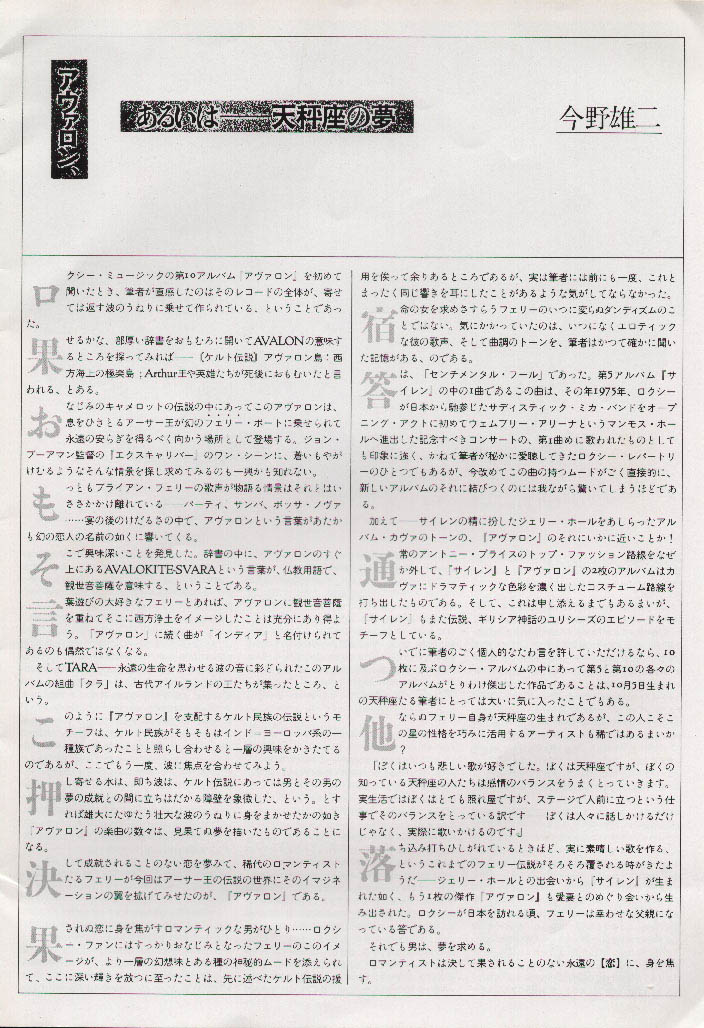 アヴァロン、
あるいは——天秤座の夢
今野雄二
ロクシー・ミュージックの第10アルバム『アヴァロン』を初めて
聞いたとき、筆者が直感したのはそのレコードの全体が、寄せ
ては返す波のうねりに乗せて作られている、ということであっ
た。
果せるかな、部厚い辞書をおもむろに開いてAVALONの意味す
るところを探ってみれば——〔ケルト伝説〕アヴァロン島：西
方海上の極楽島；Arthur王や英雄たちが死後におもむいたと言
われる、とある。
おなじみのキャメロットの伝説の中にあってこのアヴァロンは、
息をひきとるアーサー王が幻のフェリー・ボートに乗せられて
永遠の安らぎを得るべく向かう場所として登場する。ジョン・
ブーアマン監督の『エクスキャリバー』のワン・シーンに、蒼いもやが
けむるようなそんな情景を探し求めてみるのも一興かも知れない。
もっともブライアン・フェリーの歌声が物語る情景はそれとはい
ささかかけ離れている——パーティ、サンバ、ボッサ・ノヴァ
……宴の後のけだるさの中で、アヴァロンという言葉があたか
も幻の恋人の名前の如くに響いてくる。
そこで興味深いことを発見した。辞書の中に、アヴァロンのすぐ
上にあるAVALOKITE-SVARAという言葉が、仏教用語で、
観世音菩薩を意味する、ということである。
言葉遊びの大好きなフェリーとあれば、アヴァロンに観世音菩薩
を重ねてそこに西方浄土をイメージしたことは充分にあり得よ
う。「アヴァロン」に続く曲が「インディア」と名付けられて
あるのも偶然ではなくなる。
そしてTARA——永遠の生命を思わせる波の音に彩どられたこのアル
バムの組曲「タラ」は、古代アイルランドの王たちが集ったところ、と
いう。
このように『アヴァロン』を支配するケルト民族の伝説というモ
チーフは、ケルト民族がそもそもはインド＝ヨーロッパ系の一
種族であったことと照らし合わせると一層の興味をかきたてる
のであるが、ここでもう一度、波に焦点を合わせてみよう。
押し寄せる水は、即ち波は、ケルト伝説にあっては男とその男の
夢の成就との間に立ちはだかる障壁を象徴した、という。とす
れば雄大にたゆたう壮大な波のうねりに身をまかせたかの如き
『アヴァロン』の楽曲の数々は、見果てぬ夢を描いたものであることに
なる。
決して成就されることのない恋を夢みて、稀代のロマンティスト
たるフェリーが今回はアーサー王の伝説の世界にそのイマジネ
ーションの翼を拡げてみせたのが、『アヴァロン』である。
果されぬ恋に身を焦がすロマンティックな男がひとり……ロクシ
ー・ファンにはすっかりおなじみとなったフェリーのこのイメ
ージが、より一層の幻想味とある種の神秘的ムードを添えられ
て、ここに深い輝きを放つに至ったことは、先に述べたケルト伝説の援
用を俟って余りあるところであるが、実は筆者には前にも一度、これと
まったく同じ響きを耳にしたことがあるような気がしてならなかった。
宿命の女を求めさすらうフェリーのいつに変らぬダンディズムのこ
とではない。気にかかっていたのは、いつになくエロティック
な彼の歌声、そして曲調のトーンを、筆者はかつて確かに聞い
た記憶がある、のである。
答は、「センチメンタル・フール」であった。第5アルバム『サ
イレン』の中の1曲であるこの曲は、その年1975年、ロクシー
が日本から馳参じたサディスティック・ミカ・バンドをオープ
ニング・アクトに初めてウェムブリー・アリーナというマンモス・ホー
ルへ進出した記念すべきコンサートの、第1曲めに歌われたものとして
も印象に強く、かねて筆者が秘かに愛聴してきたロクシー・レパートリ
ーのひとつでもあるが、今改めてこの曲の持つムードがごく直接的に、
新しいアルバムのそれに結びつくのには我ながら驚いてしまうほどであ
る。
加えて——サイレンの精に扮したジェリー・ホールをあしらったアル
バム・カヴァのトーンの、『アヴァロン』のそれにいかに近いことか！
通常のアントニー・プライスのトップ・ファッション路線をなぜ
か外して、『サイレン』と『アヴァロン』の2枚のアルバムはカ
ヴァにドラマティックな色彩を濃く出したコスチューム路線を
打ち出したものである。そして、これは申し添えるまでもあるまいが、
『サイレン』もまた伝説、ギリシア神話のユリシーズのエピソードをモ
チーフとしている。
ついでに筆者のごく個人的なたわ言を許していただけるなら、10
枚に及ぶロクシー・アルバムの中にあって第5と第10の各々の
アルバムがとりわけ傑出した作品であることは、10月5日生まれ
の天秤座たる筆者にとっては大いに気に入ったことでもある。
他ならぬフェリー自身が天秤座の生まれであるが、この人こそこ
の星の性格を巧みに活用するアーティストも稀ではあるまいか
？
「ぼくはいつも悲しい歌が好きでした。ぼくは天秤座ですが、ぼくの
知っている天秤座の人たちは感情のバランスをうまくとっていきます。
実生活ではぼくはとても照れ屋ですが、ステージで人前に立つという仕
事でそのバランスをとっている訳です　　ぼくは人々に話しかけるだけ
じゃなく、実際に歌いかけるのです」
落ち込み打ちひしがれているときほど、実に素晴しい歌を作る、
というこれまでのフェリー伝説がそろそろ覆される時がきたよ
うだ——ジェリー・ホールとの出会いから『サイレン』が生ま
れた如く、もう1枚の傑作『アヴァロン』も愛妻とのめぐり会いから生
み出された。ロクシーが日本を訪れる頃、フェリーは幸わせな父親にな
っている筈である。
それでも男は、夢を求める。
ロマンティストは決して果されることのない永遠の【恋】に、身を焦
す。